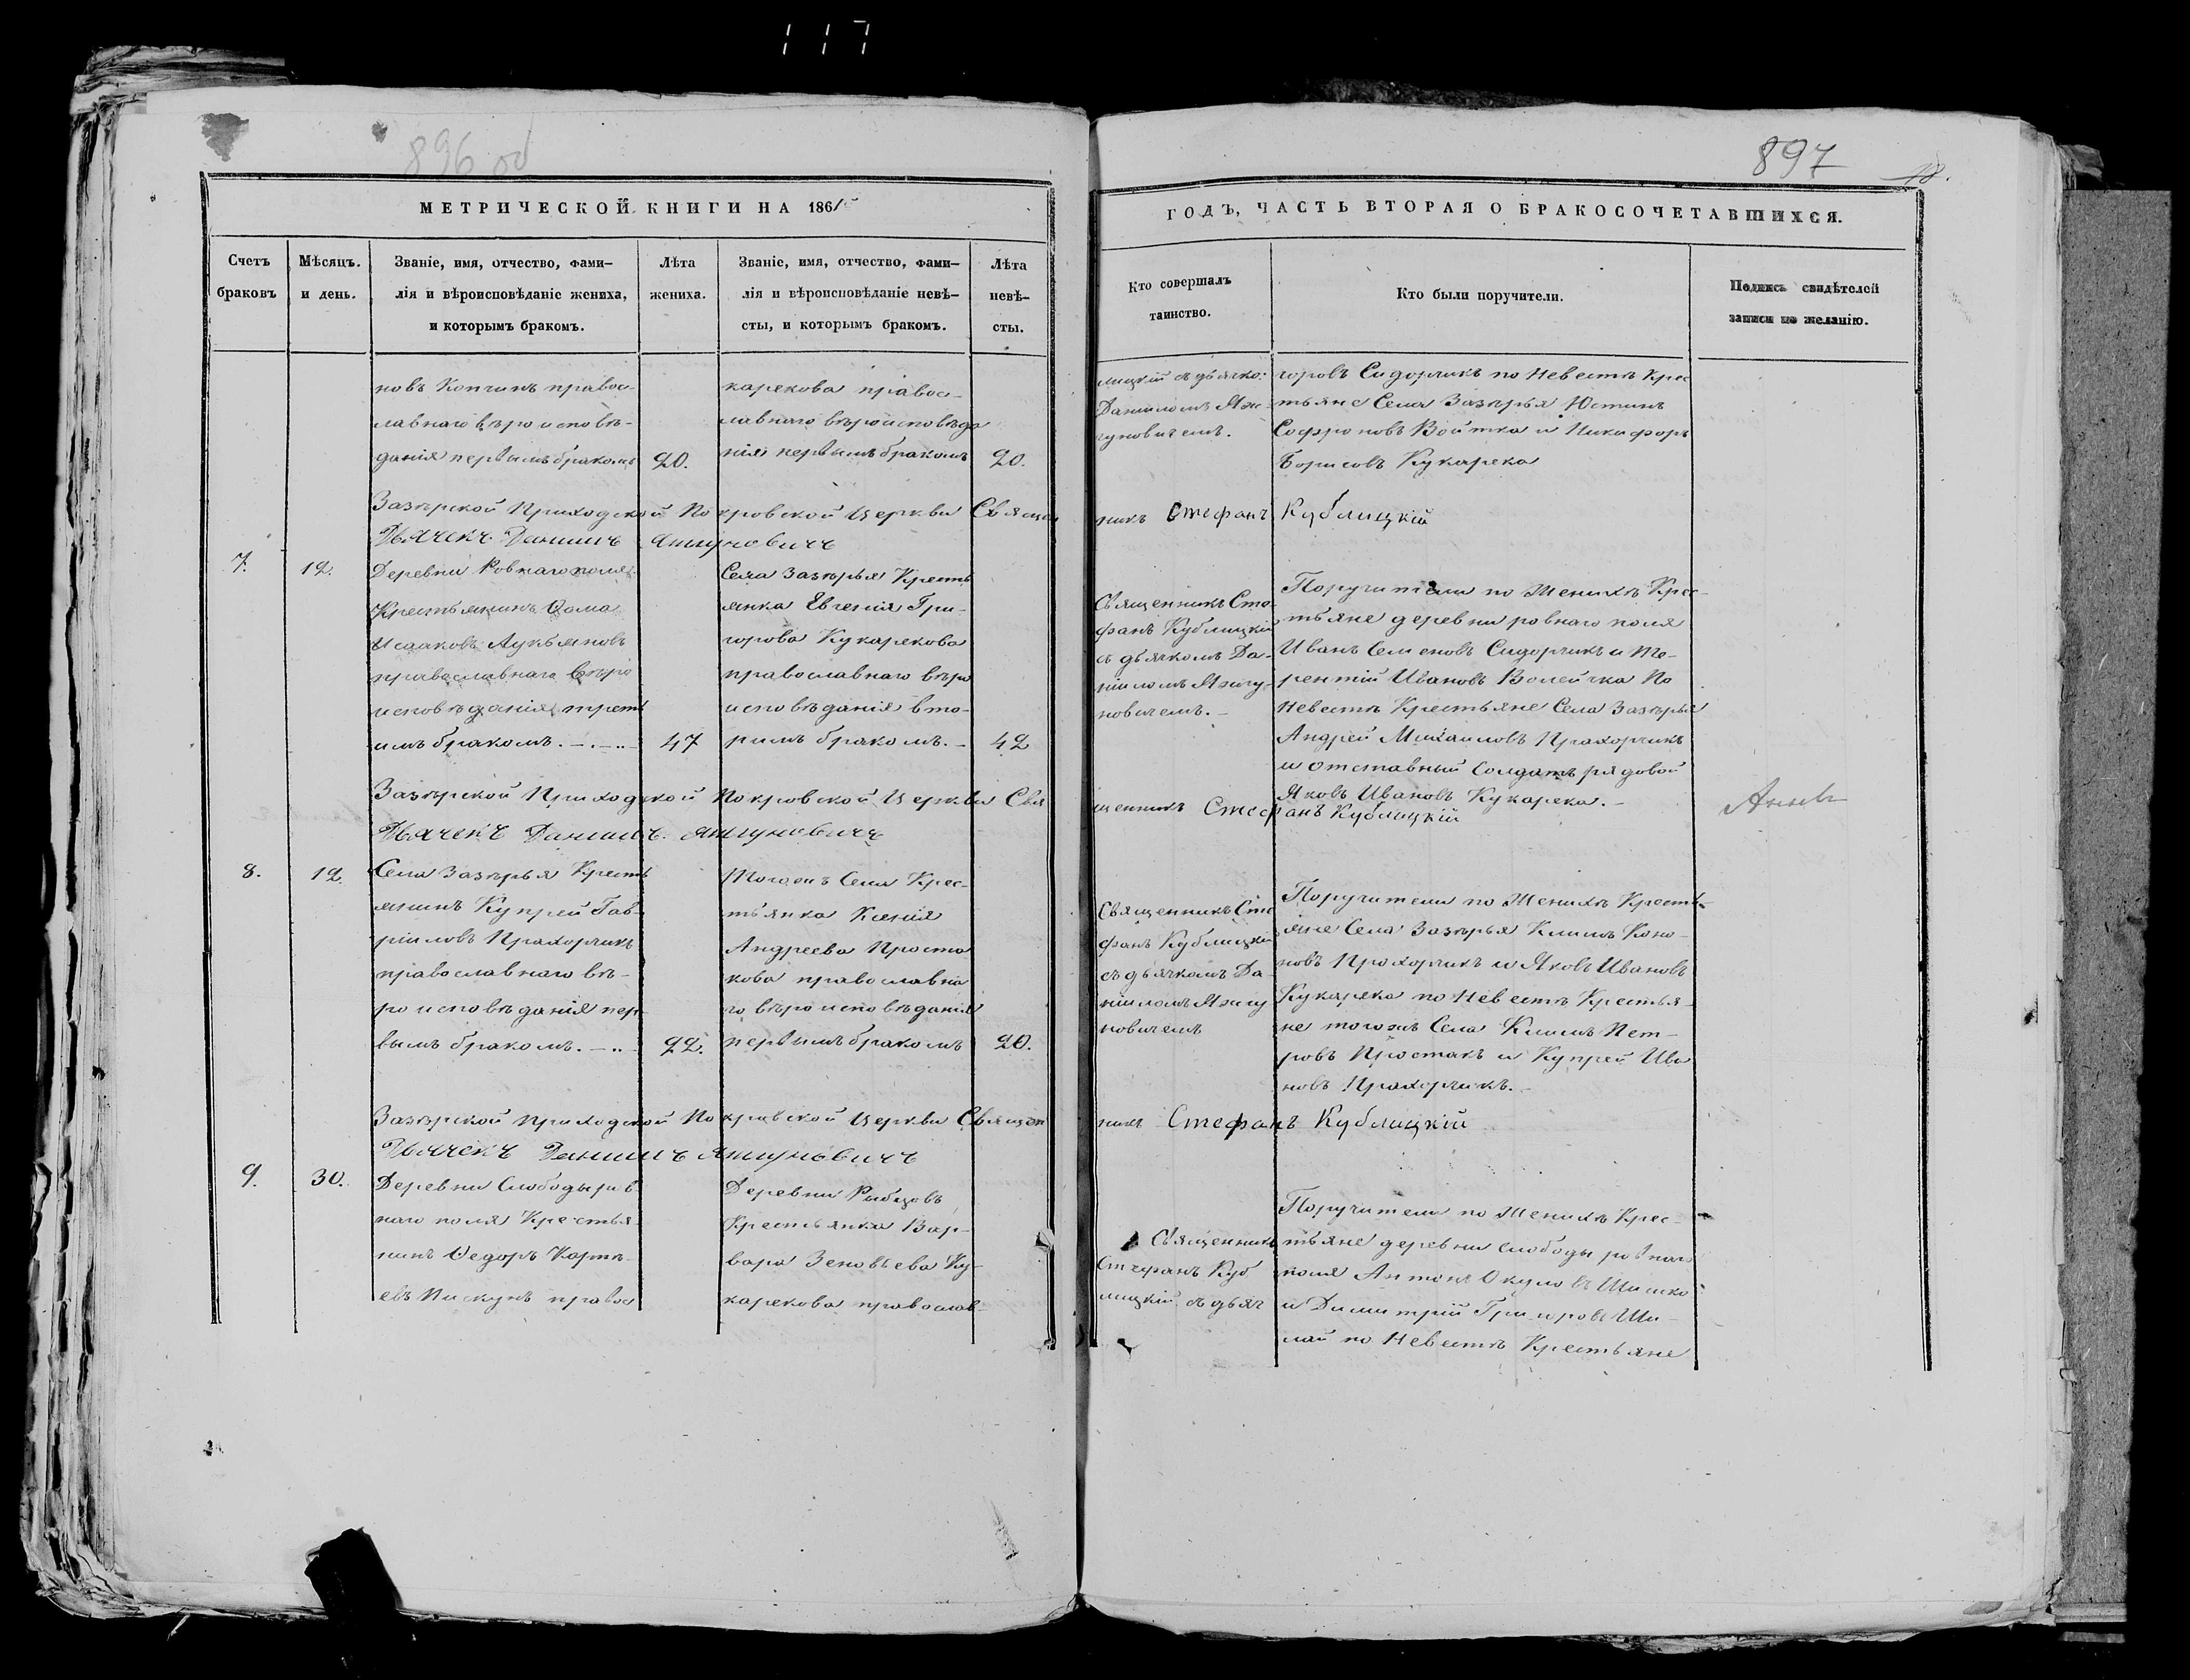 117
896 об
897
МЕТРИЧЕСКОЙ КНИГИ НА 186
ГОДЪ, ЧАСТЬ ВТОРАЯ О БРАКОСОЧЕТАВШИХСЯ.
Счетъ
браковъ
Мѣсяцъ.
и день.
Званіе, имя, отчество, фами-
лія и вѣроисповѣданіе жениха,
и которымъ бракомъ.
Лѣта
жениха.
Званіе, имя, отчество, фами-
лія и вѣроисповѣданіе невѣ-
сты, и которымъ бракомъ.
Лѣта
невѣ-
сты.
Кто совершалъ
таинство.
Кто были поручители.
Подпись свидѣтелей
записи по желанію.
новъ правос-
лавнаго вѣроисповѣ-
данія первымъ бракомъ
20.
карекова правос-
лавнаго вѣроисповѣда
нія первымъ бракомъ
20.
лицкій съ дьячко:
Даниломъ Яжг-
уновичемъ.
горовъ Сидорчикъ по Невестѣ Крес
тьяне Села Зазѣрья Юстинъ
Софроновъ Войтка и Никифоръ
Борисовъ Кукарека
Зазѣрской Приходской Покровской Церкви Священ
никъ Стефанъ Кублицкій
Дьячекъ Даниилъ Яжгуновичъ
7.
12.
Деревни Ровнаго поля
Крестьянинъ Ѳома
Исааковъ Лукьяновъ
православнаго вѣро
исповѣданія треть
имъ бракомъ. - . - .. -
47
Села Зазѣрья Кресть
янка Евгенія Гри-
горова Кукарекова
православнаго вѣро
исповѣданія вто-
рымъ бракомъ. -
42
Священникъ Сте-
фанъ Кублицкій
съ дьячкомъ Да-
ніиломъ Яжгу-
новичемъ. -
Поручители по Женихѣ Крес-
тьяне деревни ровнаго поля
Иванъ Семеновъ Сидорчикъ и Те-
рентій Ивановъ Волейчка По
Невестѣ Крестьяне Села Зазѣрья
Андрей Михаиловъ Прахорчикъ
и отставный Солдатъ рядовой
Яковъ Ивановъ Кукарека. -
Зазѣрской Приходской Покровской Церкви Свя
щенникъ Стефанъ Кублицкій
Дьячекъ Даниилъ Яжгуновичъ
8.
12.
Села Зазѣрья Кресть
янинъ Купрей Гав-
ріиловъ Прахорчикъ
православнаго вѣ-
роисповѣданія пер-
вымъ бракомъ. - .. -
22.
Тогожъ Села Крес-
тьянка Ксенія
Андреева Проста
кова православна
го вѣроисповѣданія
первымъ бракомъ
20.
Священникъ Сте
фанъ Кублицкій
съ дьячкомъ Да-
ніиломъ Яжгу
новичемъ
Поручители по Женихѣ Кресть-
яне Села Зазѣрья Климъ Коно-
новъ Прохорчикъ и Яковъ Ивановъ
Кукарека по Невестѣ Крестья-
не тогожъ Села Климъ Пет-
ровъ Простакъ и Купрей Ива
новъ Прахорчикъ. -
Зазѣрской Приходской Покровской Церкви Священ
никъ Стефанъ Кублицкій
Дьячекъ Даниилъ Яжгуновичъ
9.
30.
Деревни Слободы ров
наго поля Крестья-
нинъ Ѳедоръ Карпѣ-
евъ Пискунъ правос
Деревни Рыбцовъ
Крестьянка Вар-
вара Зеновьева Ку-
карекова православ-
Священникъ
Стефанъ Куб
лицкій съ дьяч
Поручители по Женихѣ Крес-
тьяне деревни слободы ровнаго
поля Антонъ Окуловъ
и Димитрій Григоровъ Ши-
лай по Невестѣ Крестьяне